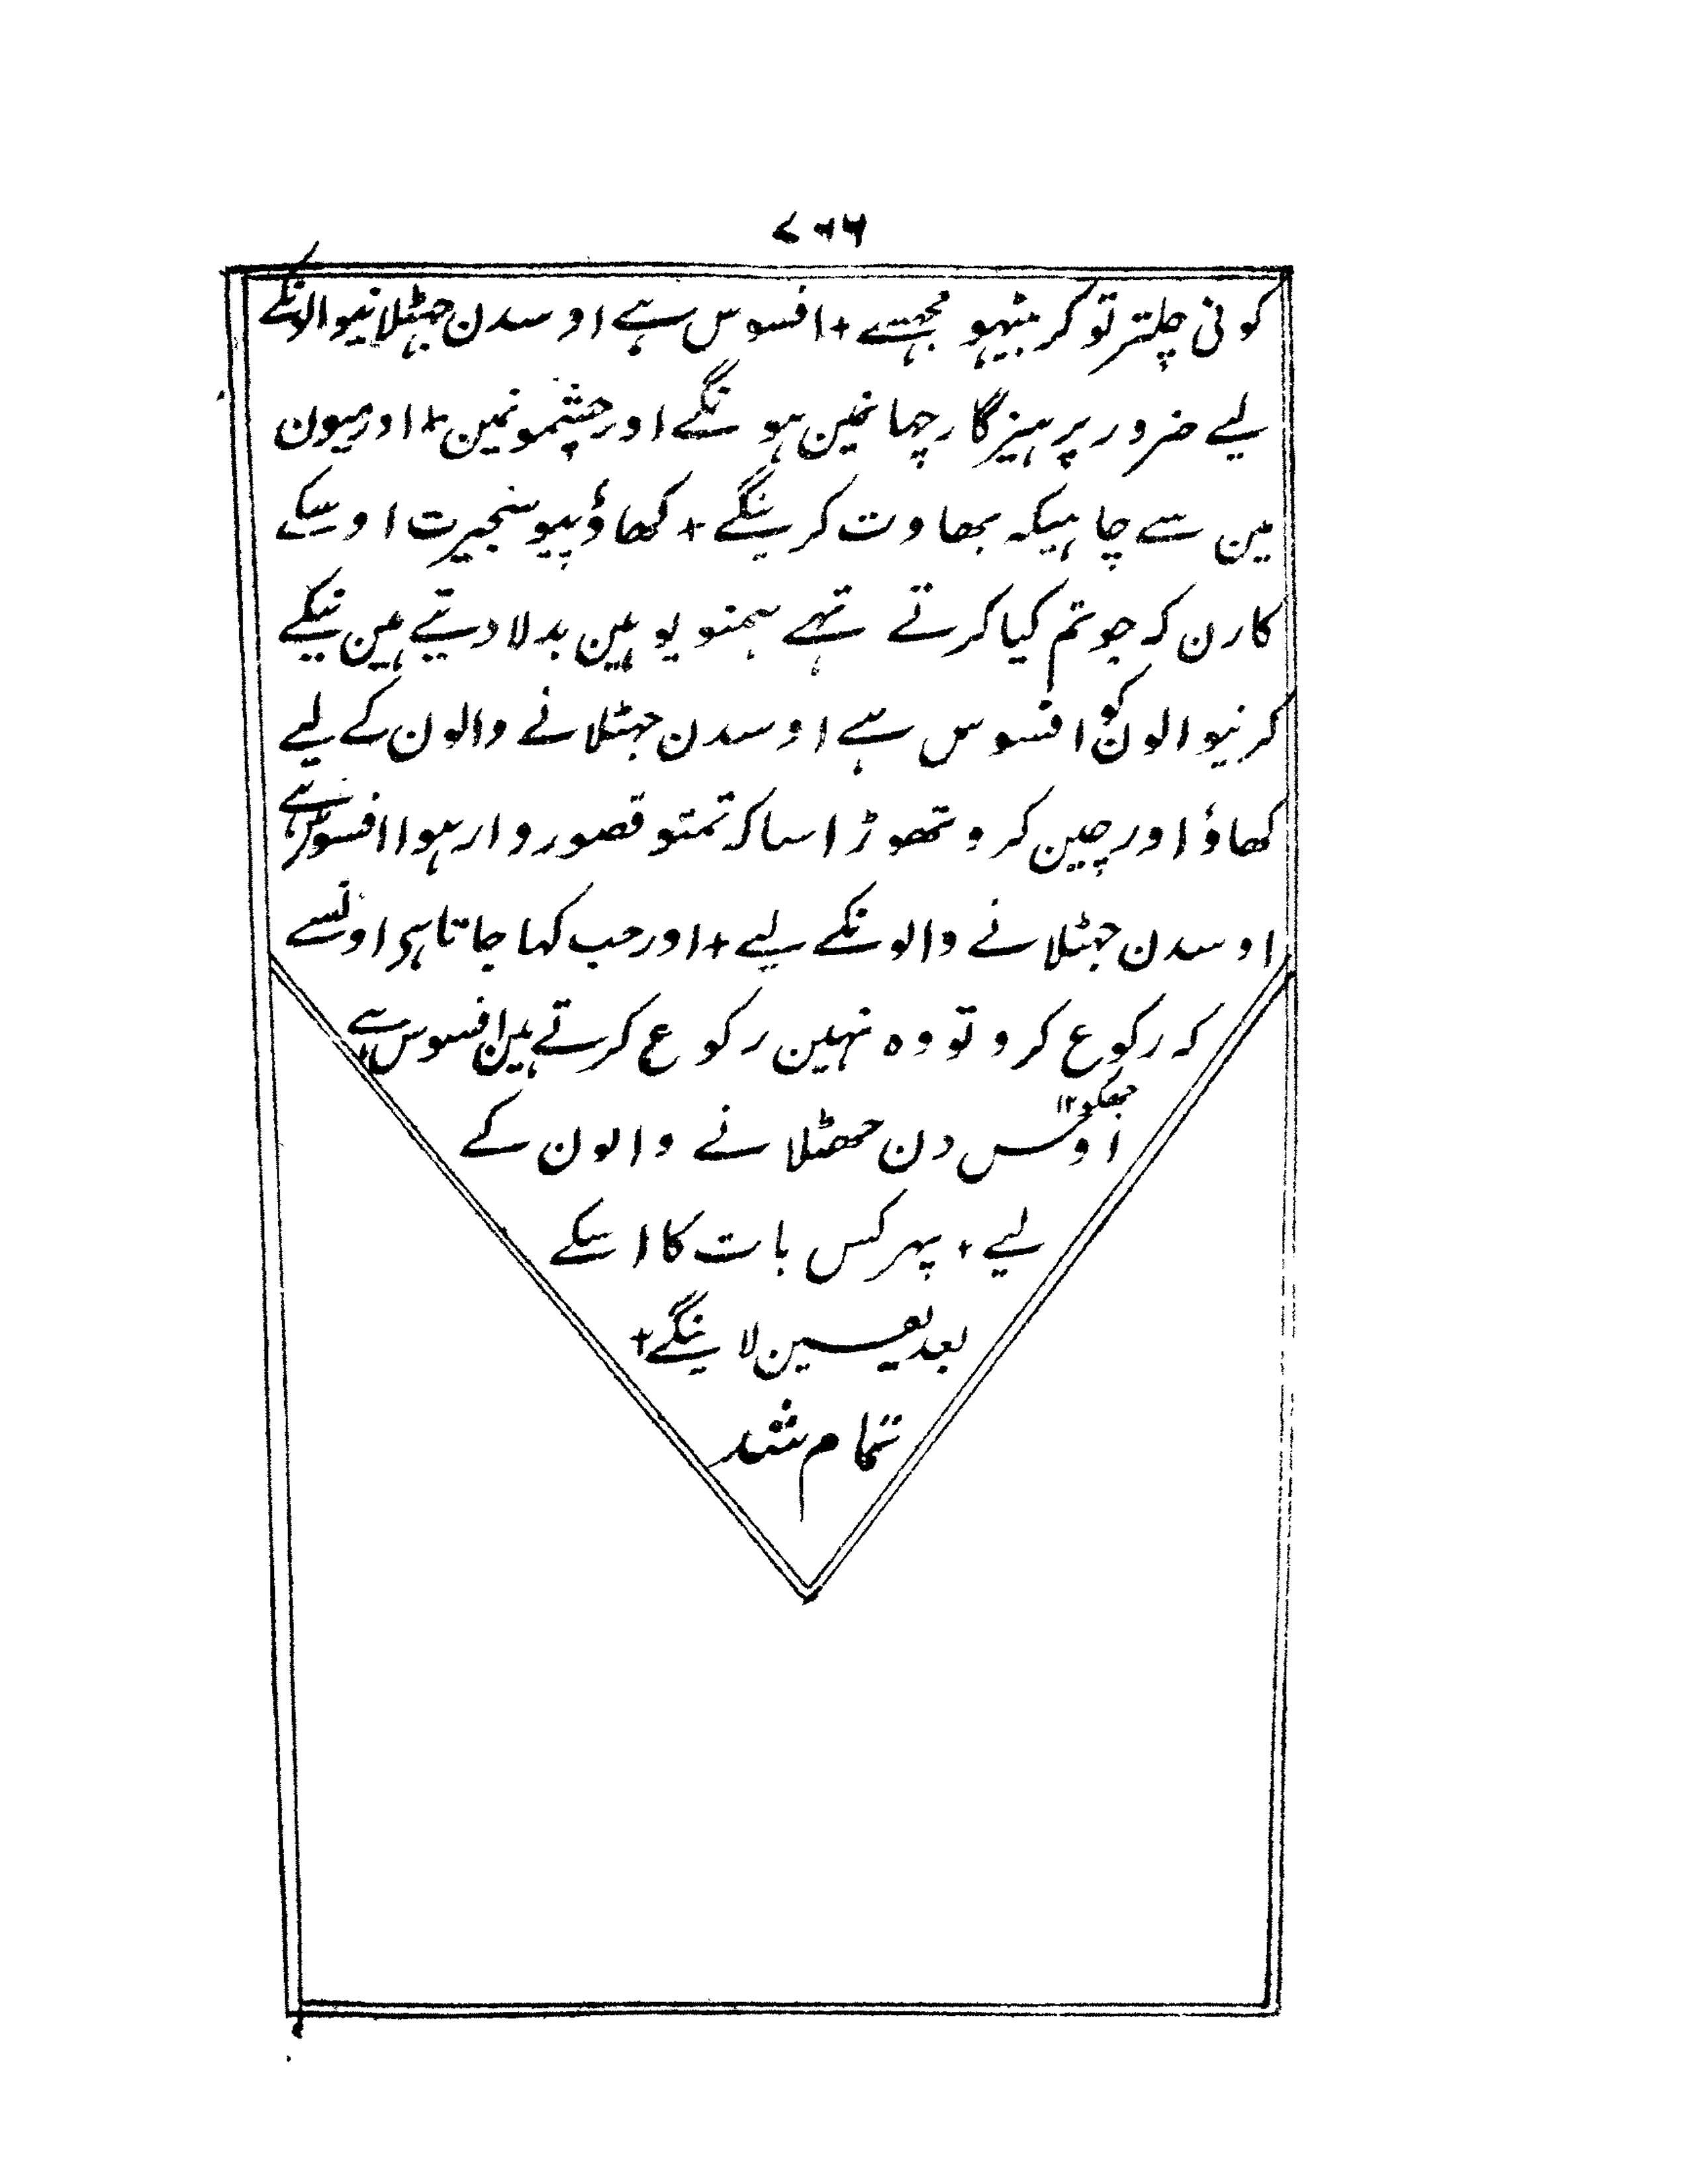 ۷۶۶
کوئی چلتر تو کر بیٹہو مجہسے + افسوس ہے اوسدن جہٹلانیوالونکے
لیے ضرور پرہیزگار چہانئین ہونگے اور چشمونمین + اور میون
مین سے چاہیکہ بھاوت کرینگے + کھاؤ پیو سنجیرت اوسکے
کارن کہ جو تم کیا کرتے تہے ہمنو یوہین بدلا دیتے ہین نیکے
کرنیوالون کو افسوس ہے اوسدن جہٹلانے والون کے لیے
کھاؤ اور چین کرو تھوڑا سا کہ تمتو قصوروار ہوا افسوس ہے
اوسدن جہٹلانے والونکے لیے + اور جب کہا جاتا ہی اونسے
کہ رکوع کرو تو وہ نہین رکوع کرتے ہین افسوس ہے
جھکو ۱۲
اوس دن جھٹلانے والون کے
لیے + پہر کس بات کا اسکے
بعد یقین لاینگے +
تمام شد